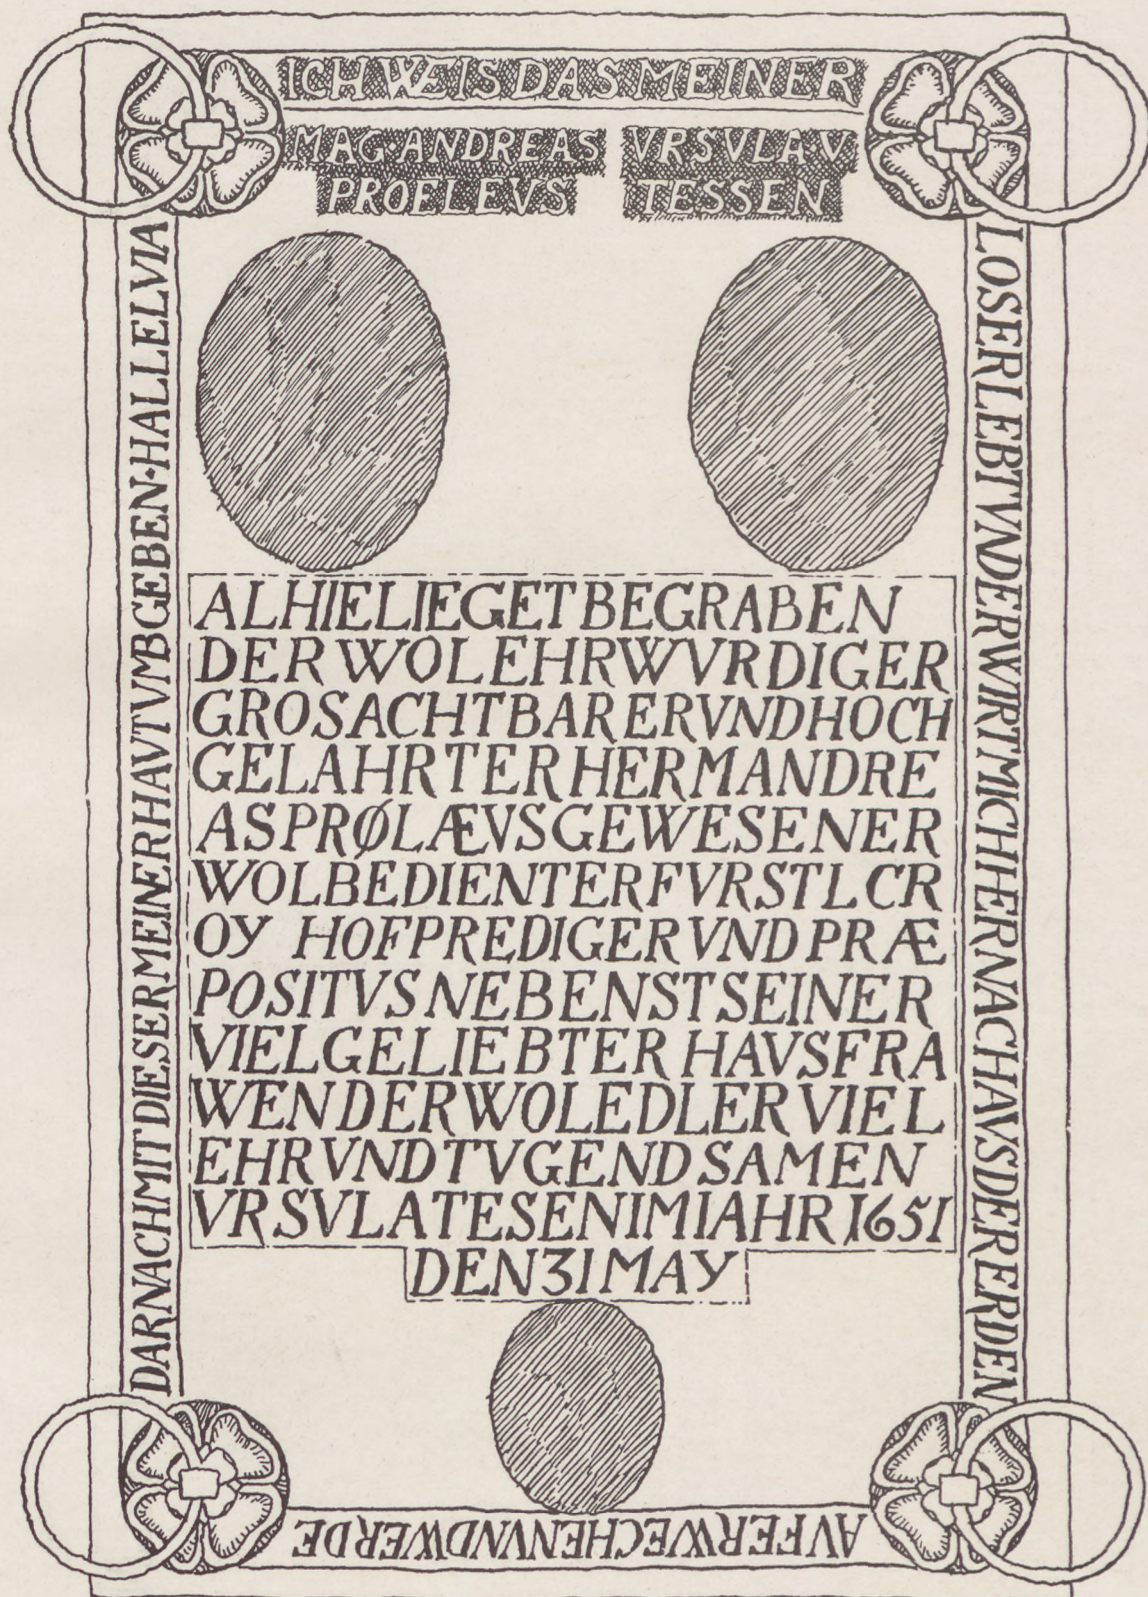 ICH WEIS DAS MEINER
MAG·ANDREAS
PROELEVS
VRSVLA V
TESSEN
LOSER LEBT VND ER WIRT MICH HERNACH AVS DER ERDEN
AVFERWECHEN VND WERDE
DARNACH MIT DIESER MEINER HAVT VMBGEBEN·HALLELVIA
ALHIE LIEGET BEGRABEN
DER WOLEHRWVRDIGER
GROSACHTBARER VND HOCH
GELAHRTER HER M ANDRE
AS PRØLÆVS GEWESENER
WOLBEDIENTER FVRSTL CR
OY HOFPREDIGER VND PRÆ
POSITVS NEBENST SEINER
VIELGELIEBTER HAVSFRA
WEN DER WOLEDLER VIEL
EHR VND TVGENDSAMEN
VRSVLA TESEN IM IAHR 1651
DEN 31 MAY